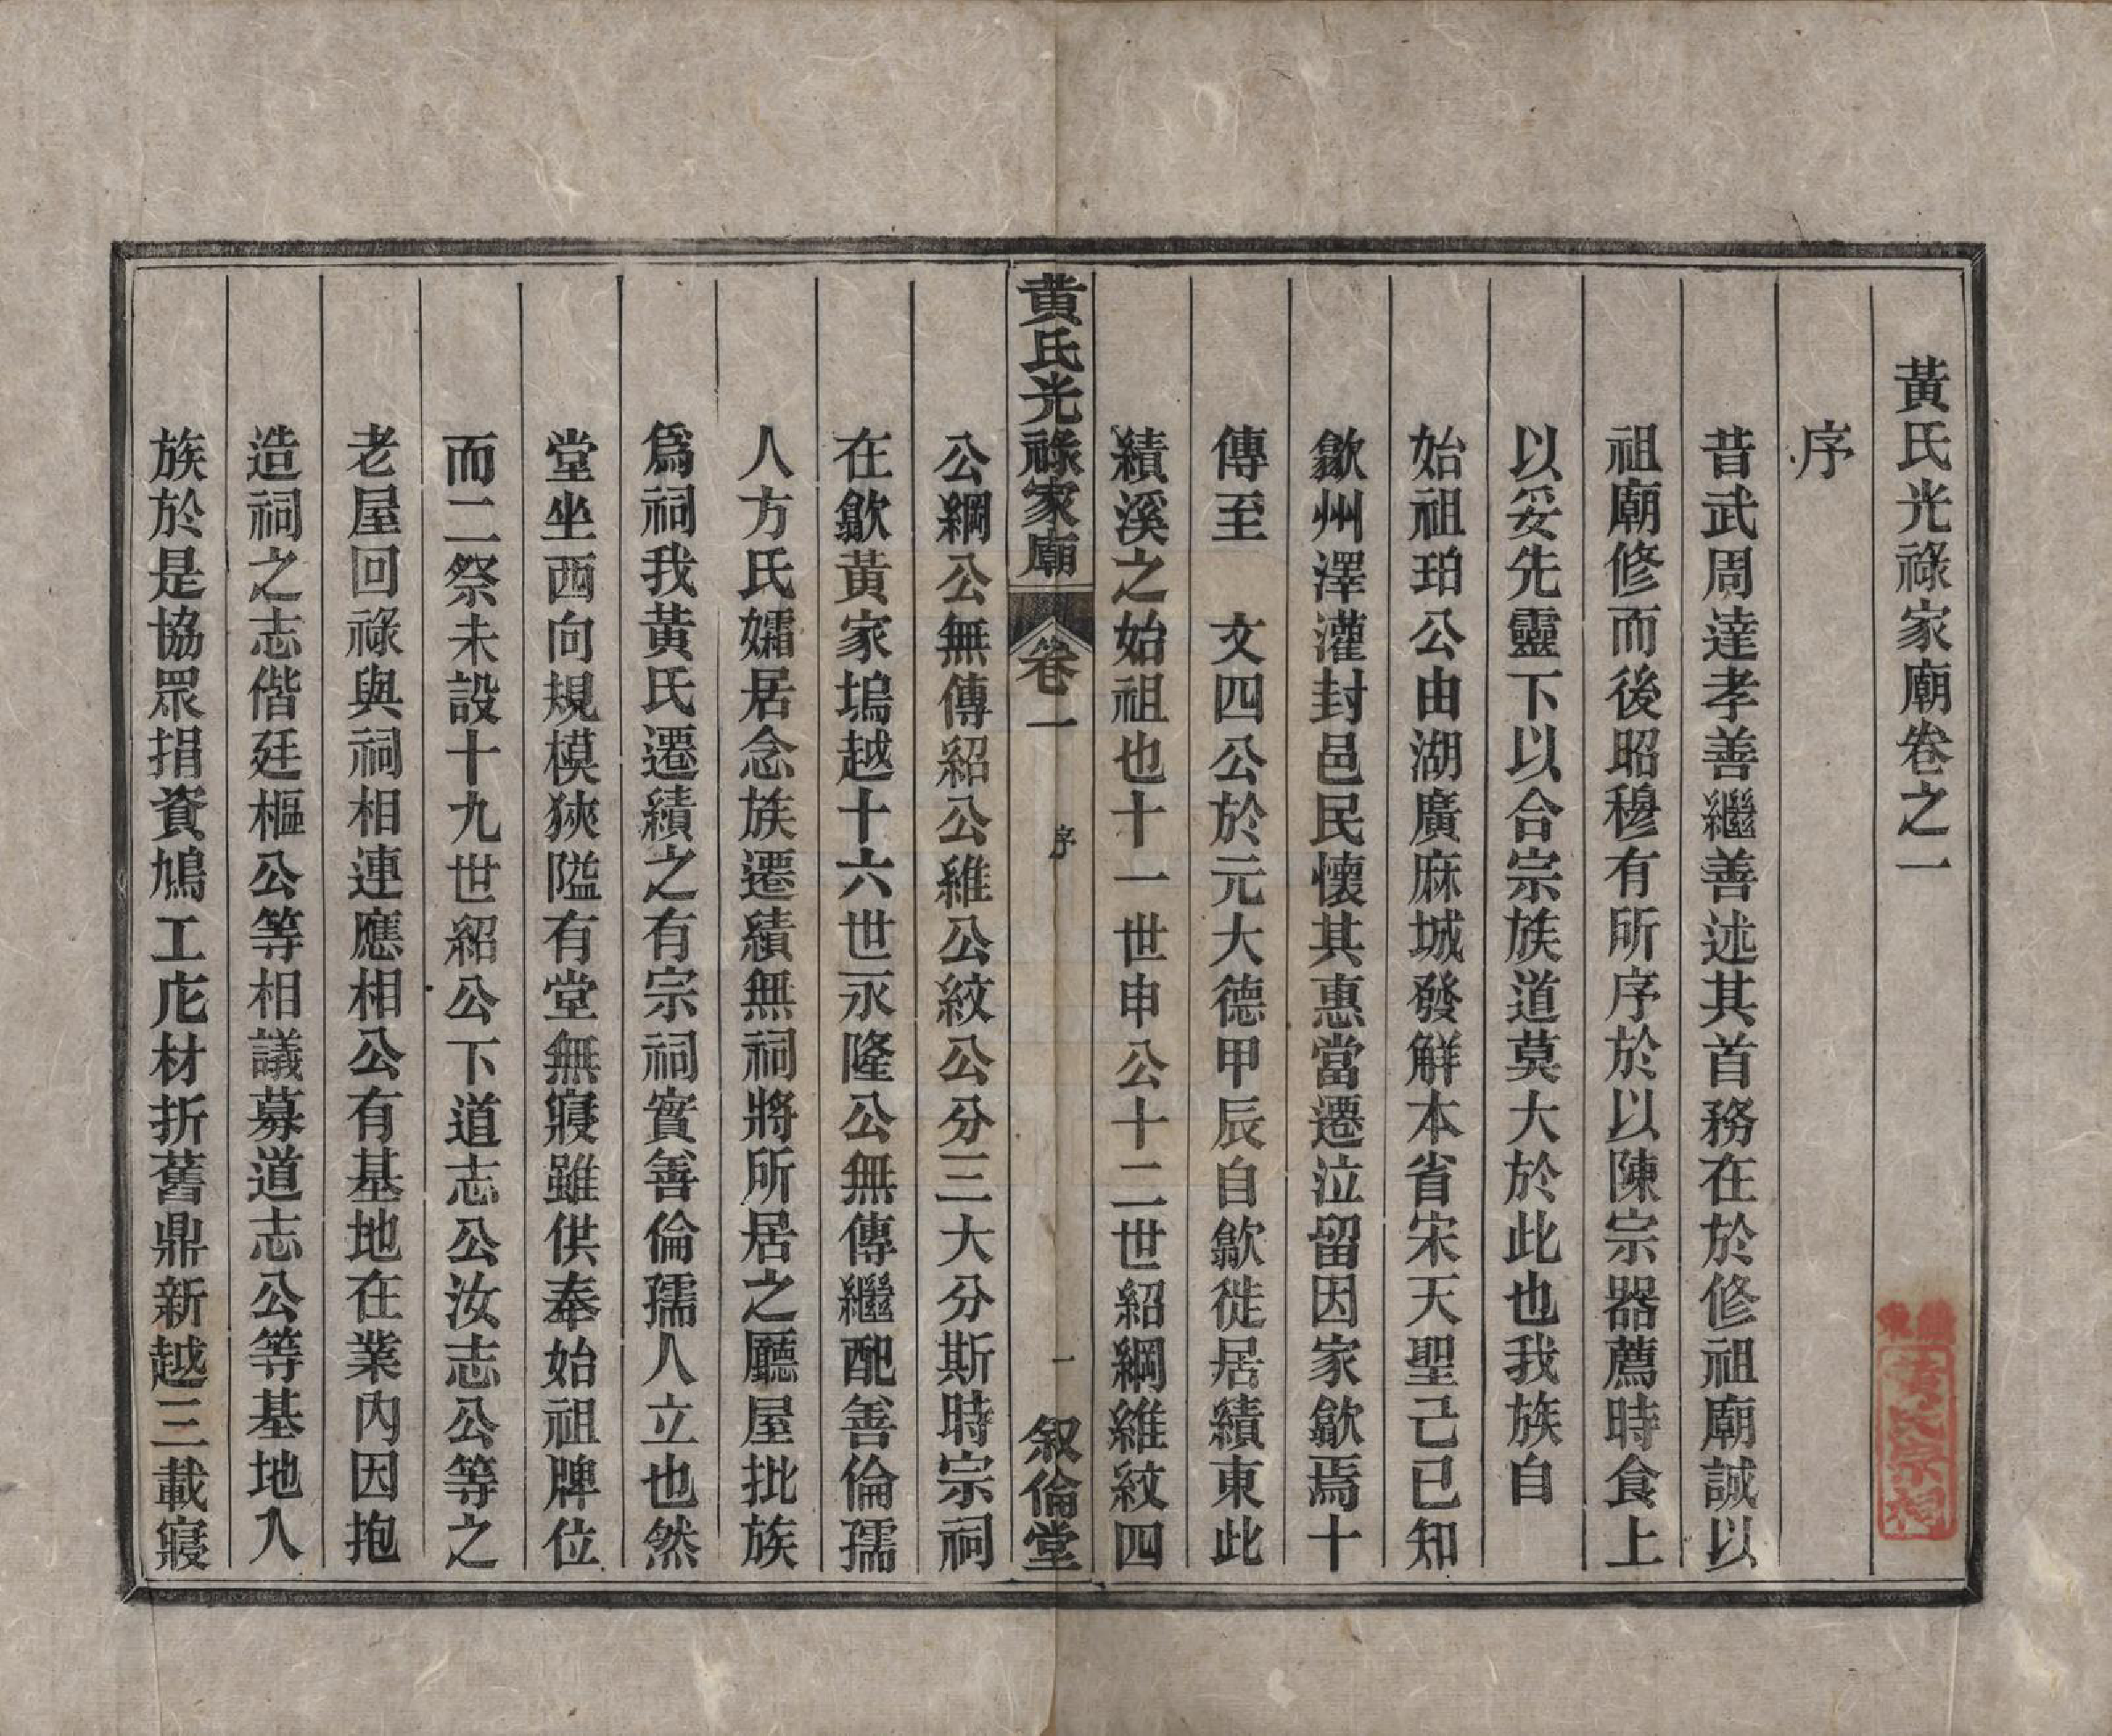 黃氏光祿家廟卷之一
序
昔武周達孝善繼善述其首務在於修祖廟誠以
祖廟修而後昭穆有所序於以陳宗器薦時食上
以妥先靈下以合宗族道莫大於此也我族自
始祖珀公由湖廣麻城發解本省宋天聖己巳知
歙州澤灌封邑民懷其惠當遷泣留因家歙焉十
傳至　文四公於元大德甲辰自歙徙居績東此
績溪之始祖也十一世申公十二世紹綱維紋四
黃氏光祿家廟　卷一　序　一　叙倫堂
公綱公無傳紹公維公紋公分三大分斯時宗祠
在歙黃家塢越十六世永隆公無傳繼配善倫孺
人方氏孀居念族遷績無祠將所居之廳屋批族
爲祠我黃氏遷績之有宗祠實善倫孺人立也然
堂坐西向規模狹隘有堂無寢雖供奉始祖牌位
而二祭未設十九世紹公下道志公汝志公等之
老屋回祿與祠相連應相公有基地在業內因抱
造祠之志偕廷樞公等相議募道志公等基地入
族於是協眾捐資鳩工庀材折舊鼎新越三載寢
黃氏宗祠